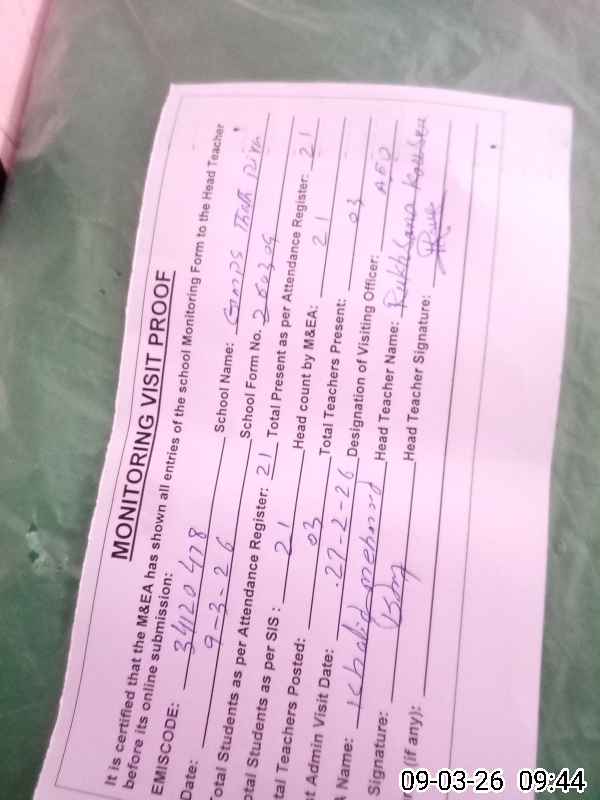 MONITORING VISIT PROOF
It is certified that the M&EA has shown all entries of the school Monitoring Form to the Head Teacher
before its online submission:
EMISCODE: 34120478 School Name: GMPS
Date: 9-3-26 School Form No. 260309
otal Students as per Attendance Register: 21 Total Present as per Attendance Register: 21
otal Students as per SIS : 21 Head count by M&EA: 21
tal Teachers Posted: 03 Total Teachers Present: 03
t Admin Visit Date: 27-2-26 Designation of Visiting Officer: AEO
Name: Khalid mehmood Head Teacher Name: Rukhsana Kousar
Signature: Head Teacher Signature:
(if any):
09-03-26 09:44